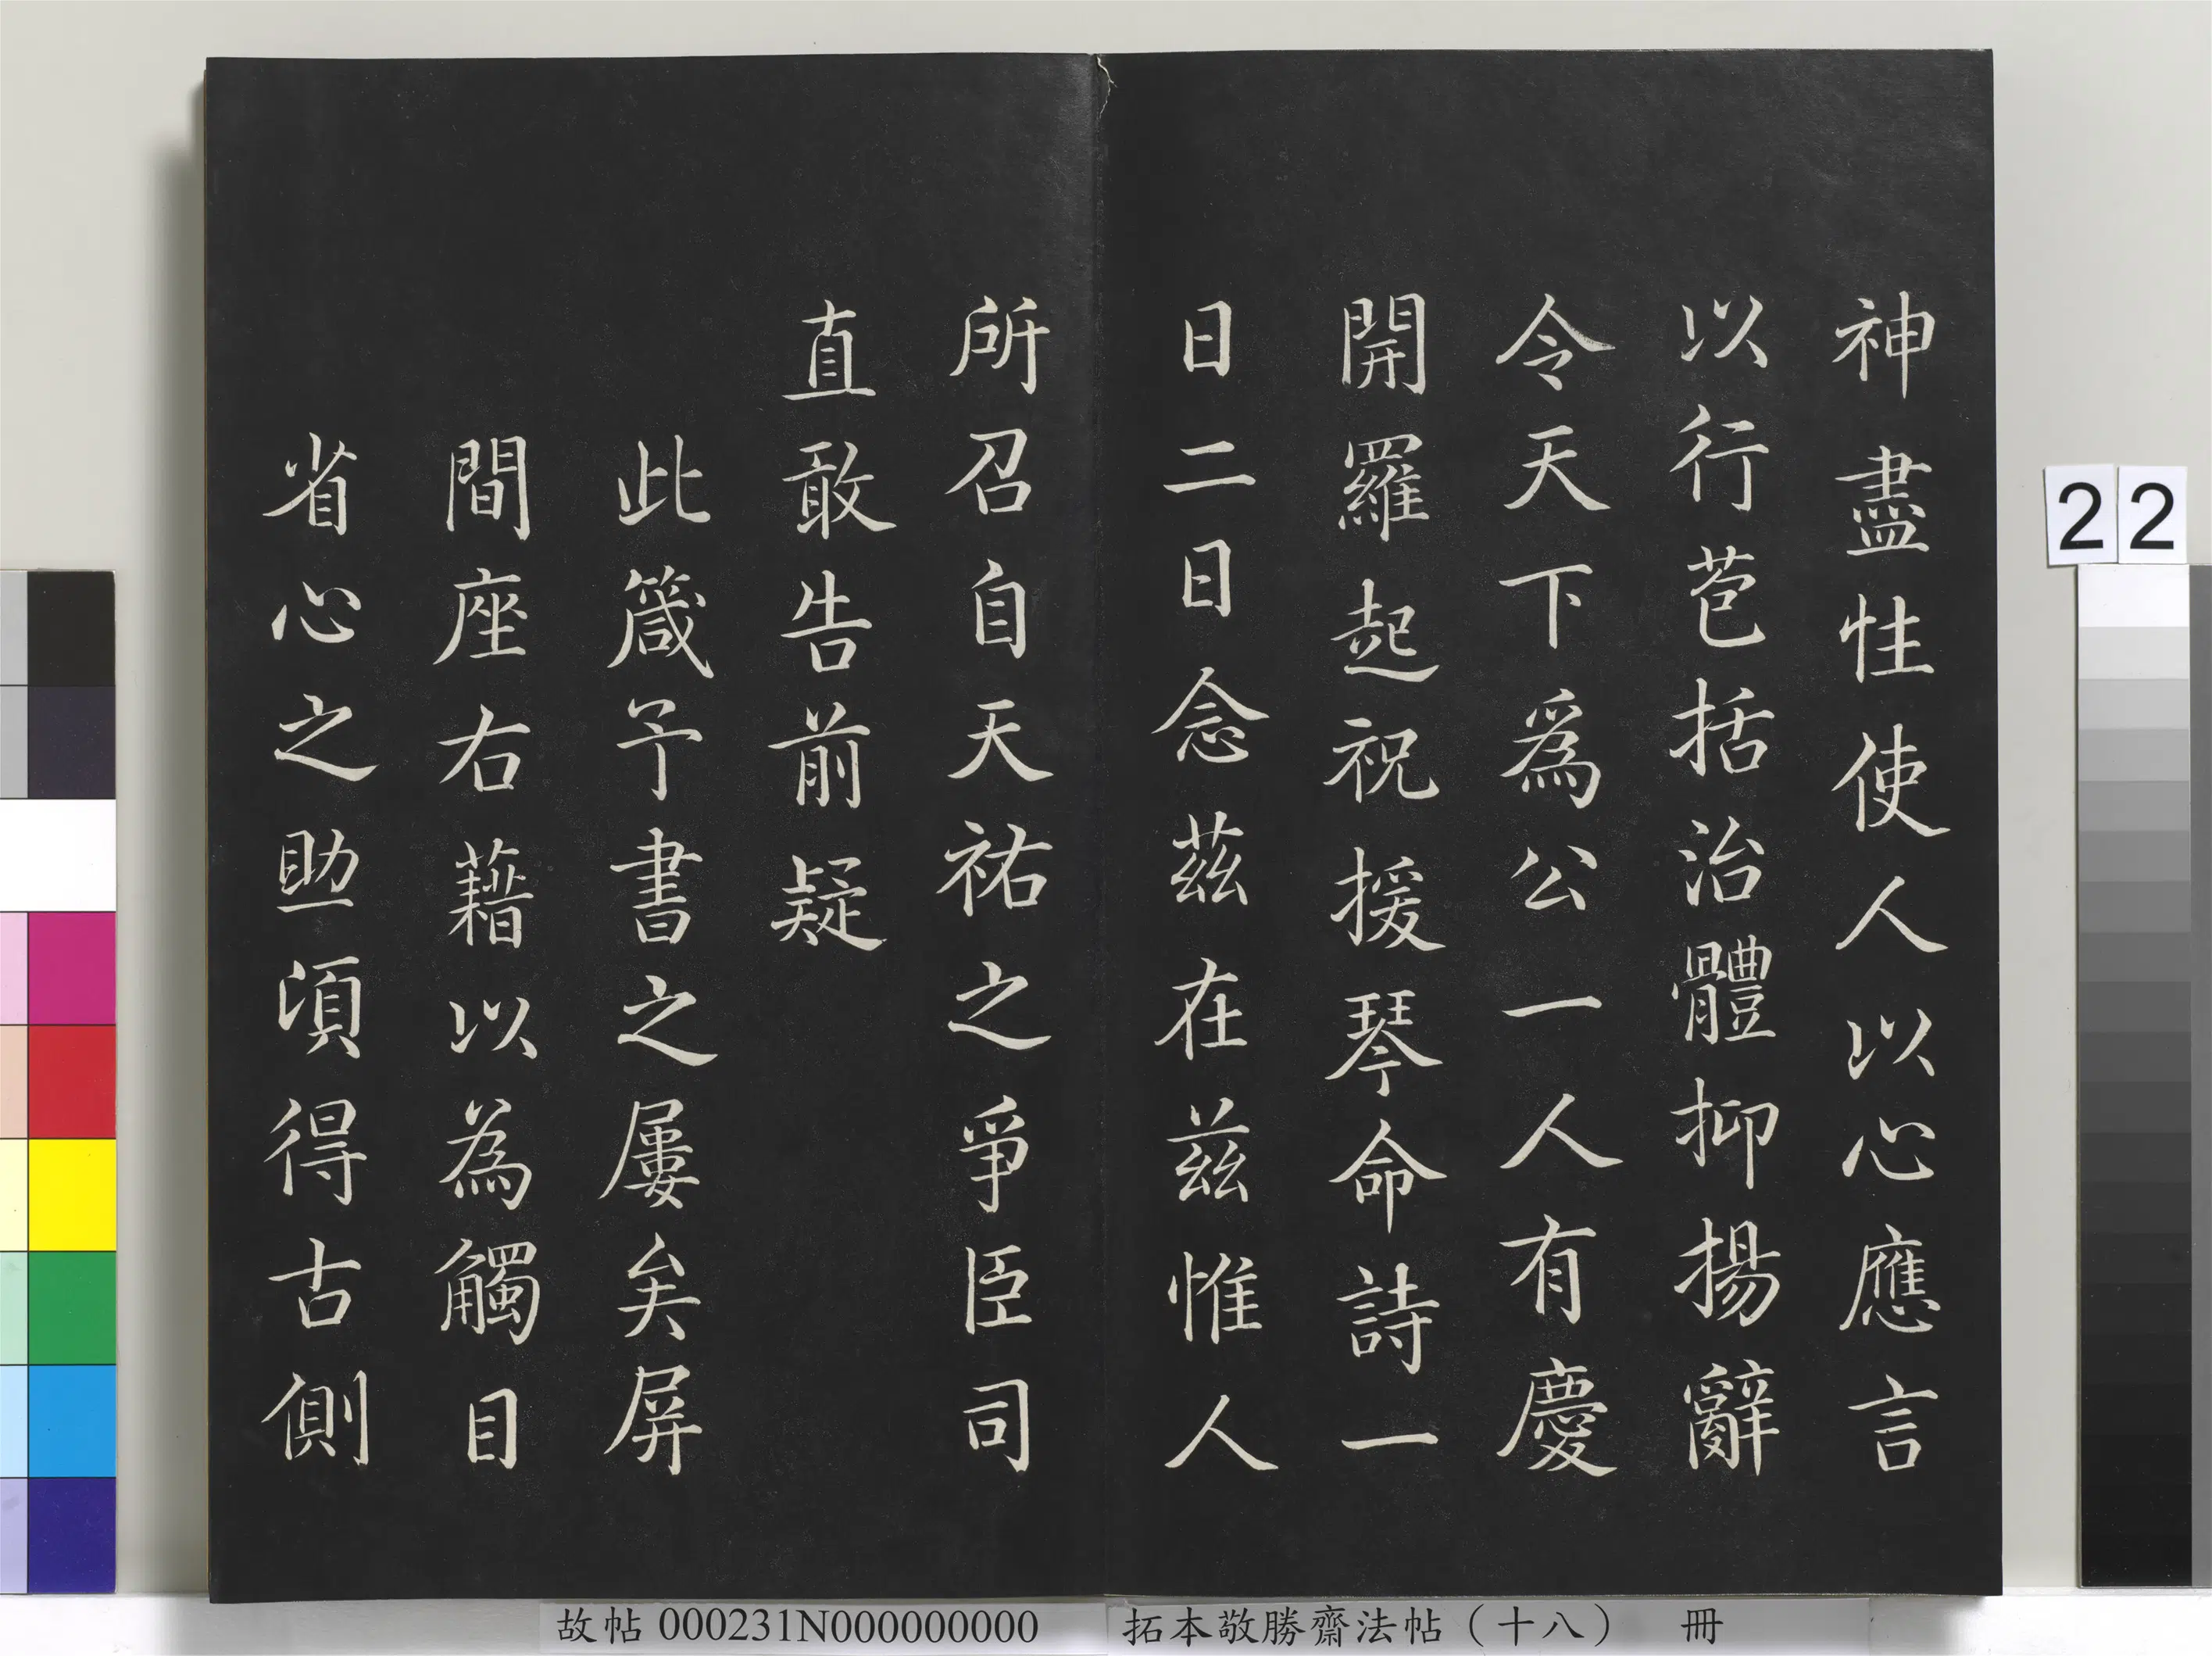 神盡性使人以心應言
以行苞括治體抑揚辭
令天下為公一人有慶
開羅起祝援琴命詩一
日二日念茲在茲惟人
所召自天祐之爭臣司
直敢告前疑
此箴予書之屢矣屏
間座右藉以為觸目
省心之助頃得古側
22
故帖 000231N000000000
拓本敬勝齋法帖（十八） 冊